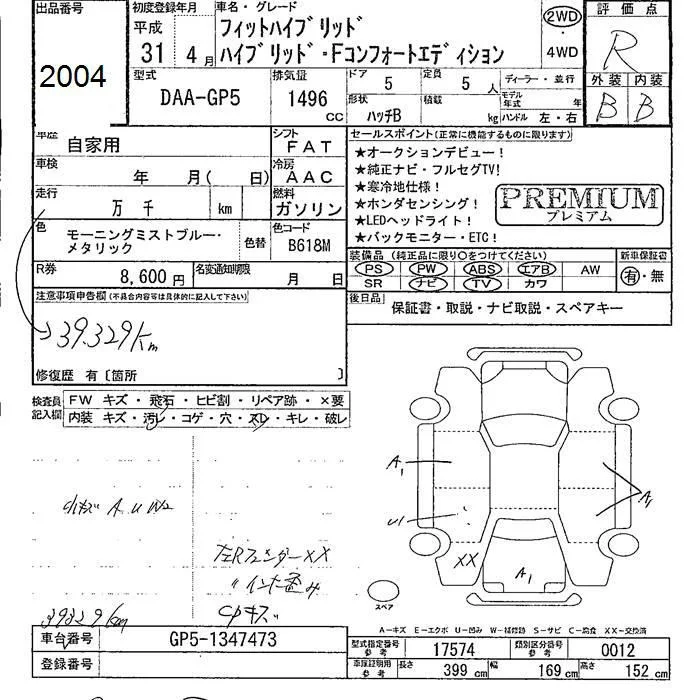 出品番号
2004
初度登録年月
平成
31 4月
車名・グレード
フィットハイブリッド
ハイブリッド・Fコンフォートエディション
2WD
・
4WD
評価点
R
外装 内装
B B
型式
DAA-GP5
排気量
1496 CC
ドア 5
定員 5 人
ディーラー・並行
形状 ハッチB
積載 kg
モデル年式 年
ハンドル 左・右
車歴 自家用
シフト FAT
車検 年 月( 日)
冷房 AAC
走行 万 千 km
燃料 ガソリン
色 モーニングミストブルー・メタリック
色替
色コード B618M
R券 8,600円
名変通知期限 月 日
セールスポイント(正常に機能するものに限ります)
★オークションデビュー!
★純正ナビ・フルセグTV!
★寒冷地仕様!
★ホンダセンシング!
★LEDヘッドライト!
★バックモニター・ETC!
PREMIUM
プレミアム
装備品(純正品に限り○をつけてください)
新車保証書
PS PW ABS エアB AW
SR ナビ TV カワ
有・無
後日品
保証書・取説・ナビ取説・スペアキー
注意事項申告欄(不具合内容等は具体的に記入して下さい)
39.329km
修復歴 有〔箇所 〕
検査員記入欄
FW キズ・飛石・ヒビ割・リペア跡・×要
内装 キズ・汚レ・コゲ・穴・スレ・キレ・破レ
小キズ A U W2
左RフェンダーXX
〃インナー歪み
CPキズ
39329km
A1
A1
U1
XX
A1
スペア
A-キズ E-エクボ U-凹み W-補修跡 S-サビ C-腐食 XX-交換済
車台番号 GP5-1347473
登録番号
型式指定番号 参考 17574
類別区分番号 参考 0012
車庫証明用 参考 長さ 399 cm 幅 169 cm 高さ 152 cm